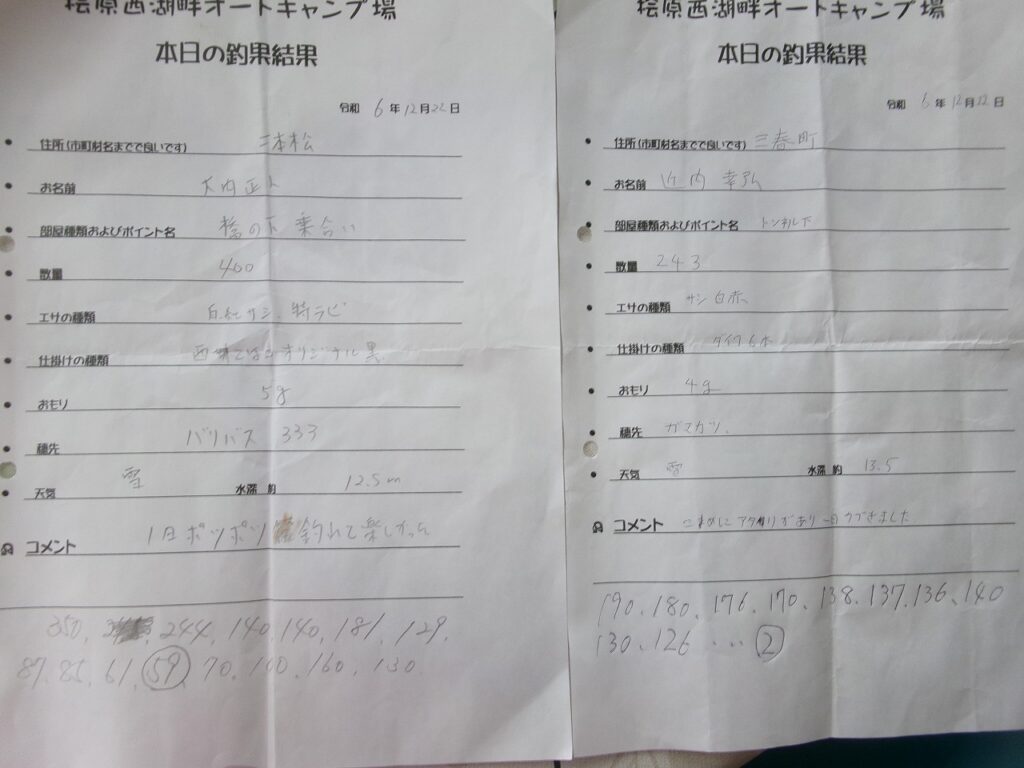 桧原西湖畔オートキャンプ場
本日の釣果結果
令和 6 年 12 月 22 日
住所(市町村名までで良いです) 二本松
お名前 大内正人
部屋種類およびポイント名 橋の下 乗合い
数量 400
エサの種類 白紅サシ、特ラビ
仕掛けの種類 オリジナル 黒
おもり 5g
穂先 バリバス 333
天気 雪 水深 約 12.5m
コメント 1日ポツポツ 釣れて楽しかった
350、 244、140、140、181、129、
87、85、61、59、70、100、160、130
桧原西湖畔オートキャンプ場
本日の釣果結果
令和 6 年 12 月 22 日
住所(市町村名までで良いです) 三春町
お名前 近内 幸弘
部屋種類およびポイント名 トンネル下
数量 243
エサの種類 サシ 白赤、
仕掛けの種類 ダイワ6本
おもり 4g
穂先 ガマカツ、
天気 雪 水深 約 13.5
コメント こまめにアタリがあり一日
190、180、176、170、138、137、136、140
130、126 ・・・ ②